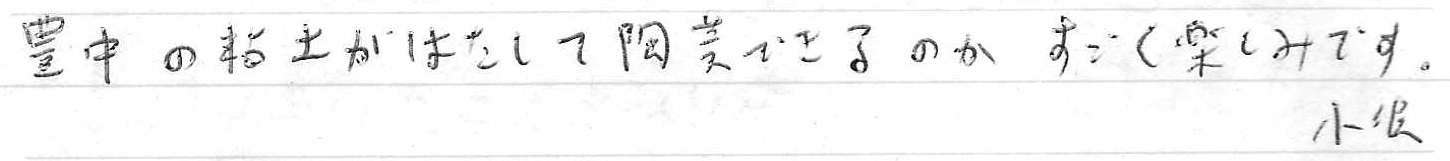 豊中の粘土がはたして陶芸できるのか すごく楽しみです。
小